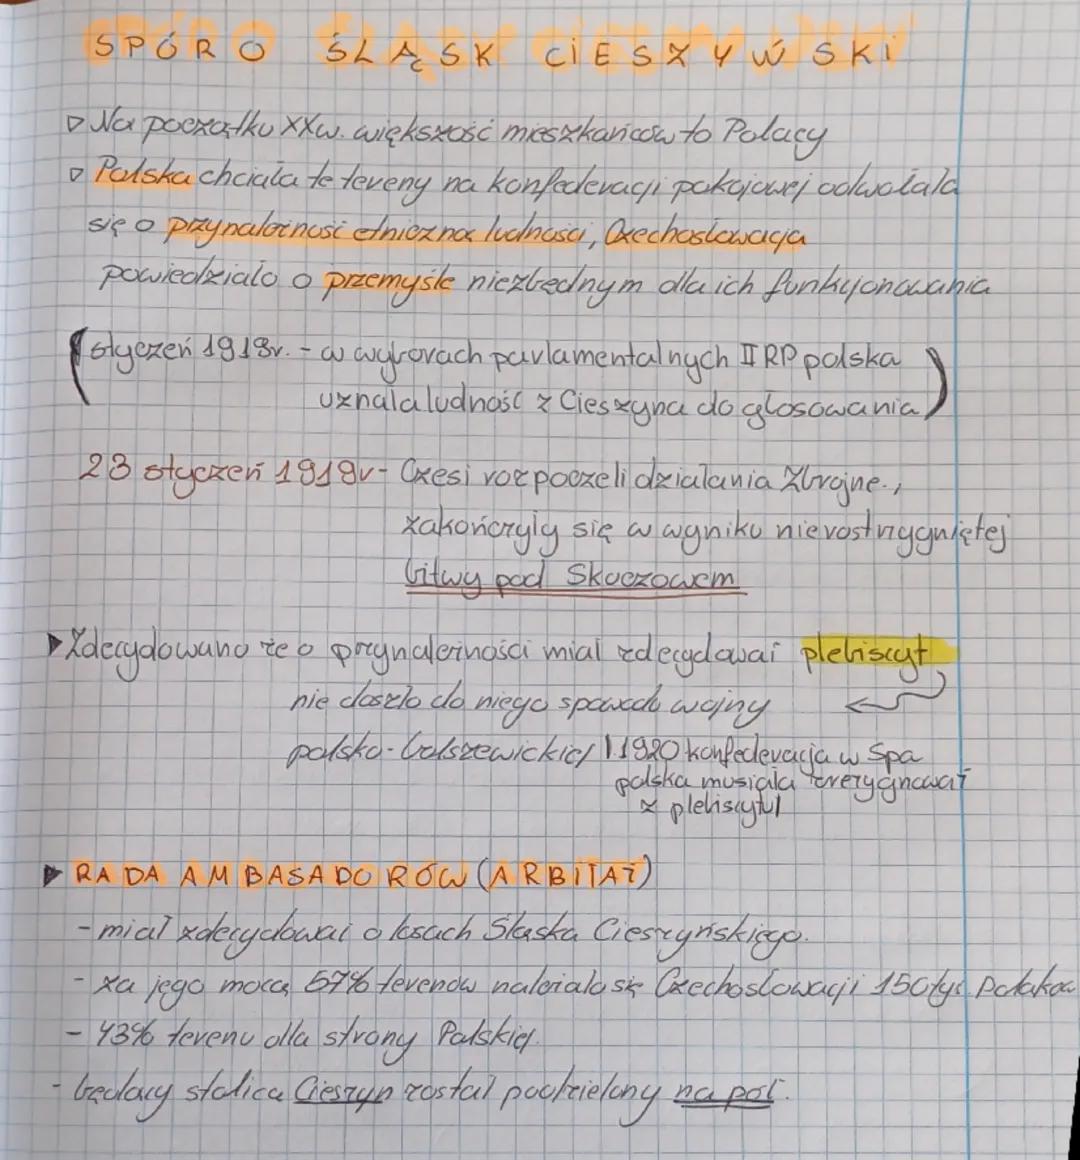 SPÓR O ŚLĄSK CIESZYŃSKI
Na początku XXw. większość mieszkańców to Polacy
Polska chciała te tereny na konfederacji pokojowej odwołała
się o przynależność etniczna ludności, Czechosłowacja
powiedziało o przemyśle niezbędnym dla ich funkcjonowania
(styczeń 1919r. - w wyborach parlamentalnych II RP polska
uznala ludność z Cieszyna do głosowania)
23 styczeń 1919r - Czesi rozpoczeli działania Zbrojne.,
zakończyły się w wyniku nierostrzygniętej
bitwy pod Skoczowem
Zdecydowano że o przynależności miał zdecydować plebiscyt
nie doszło do niego spowodo wojny
polsko-bolszewickiej | 1920 konfederacja w Spa
polska musiała zrezygnować
z plebiscytu |
RADA AMBASADORÓW (ARBITAŻ)
- miał zdecydować o losach Śląska Cieszyńskiego.
- za jego mocą 57% terenów należiało się Czechosłowacji 150tyś. Polaków
- 43% terenu dla strony Polskiej.
- będący stolica Cieszyn został podzielony na pół.